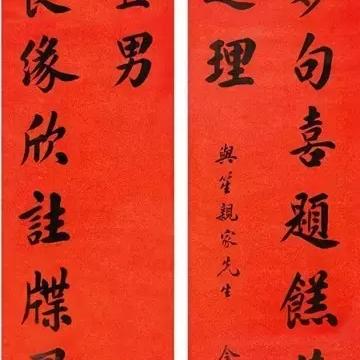 句喜題餻
理
與笙親家先生
男
良緣欣註牒